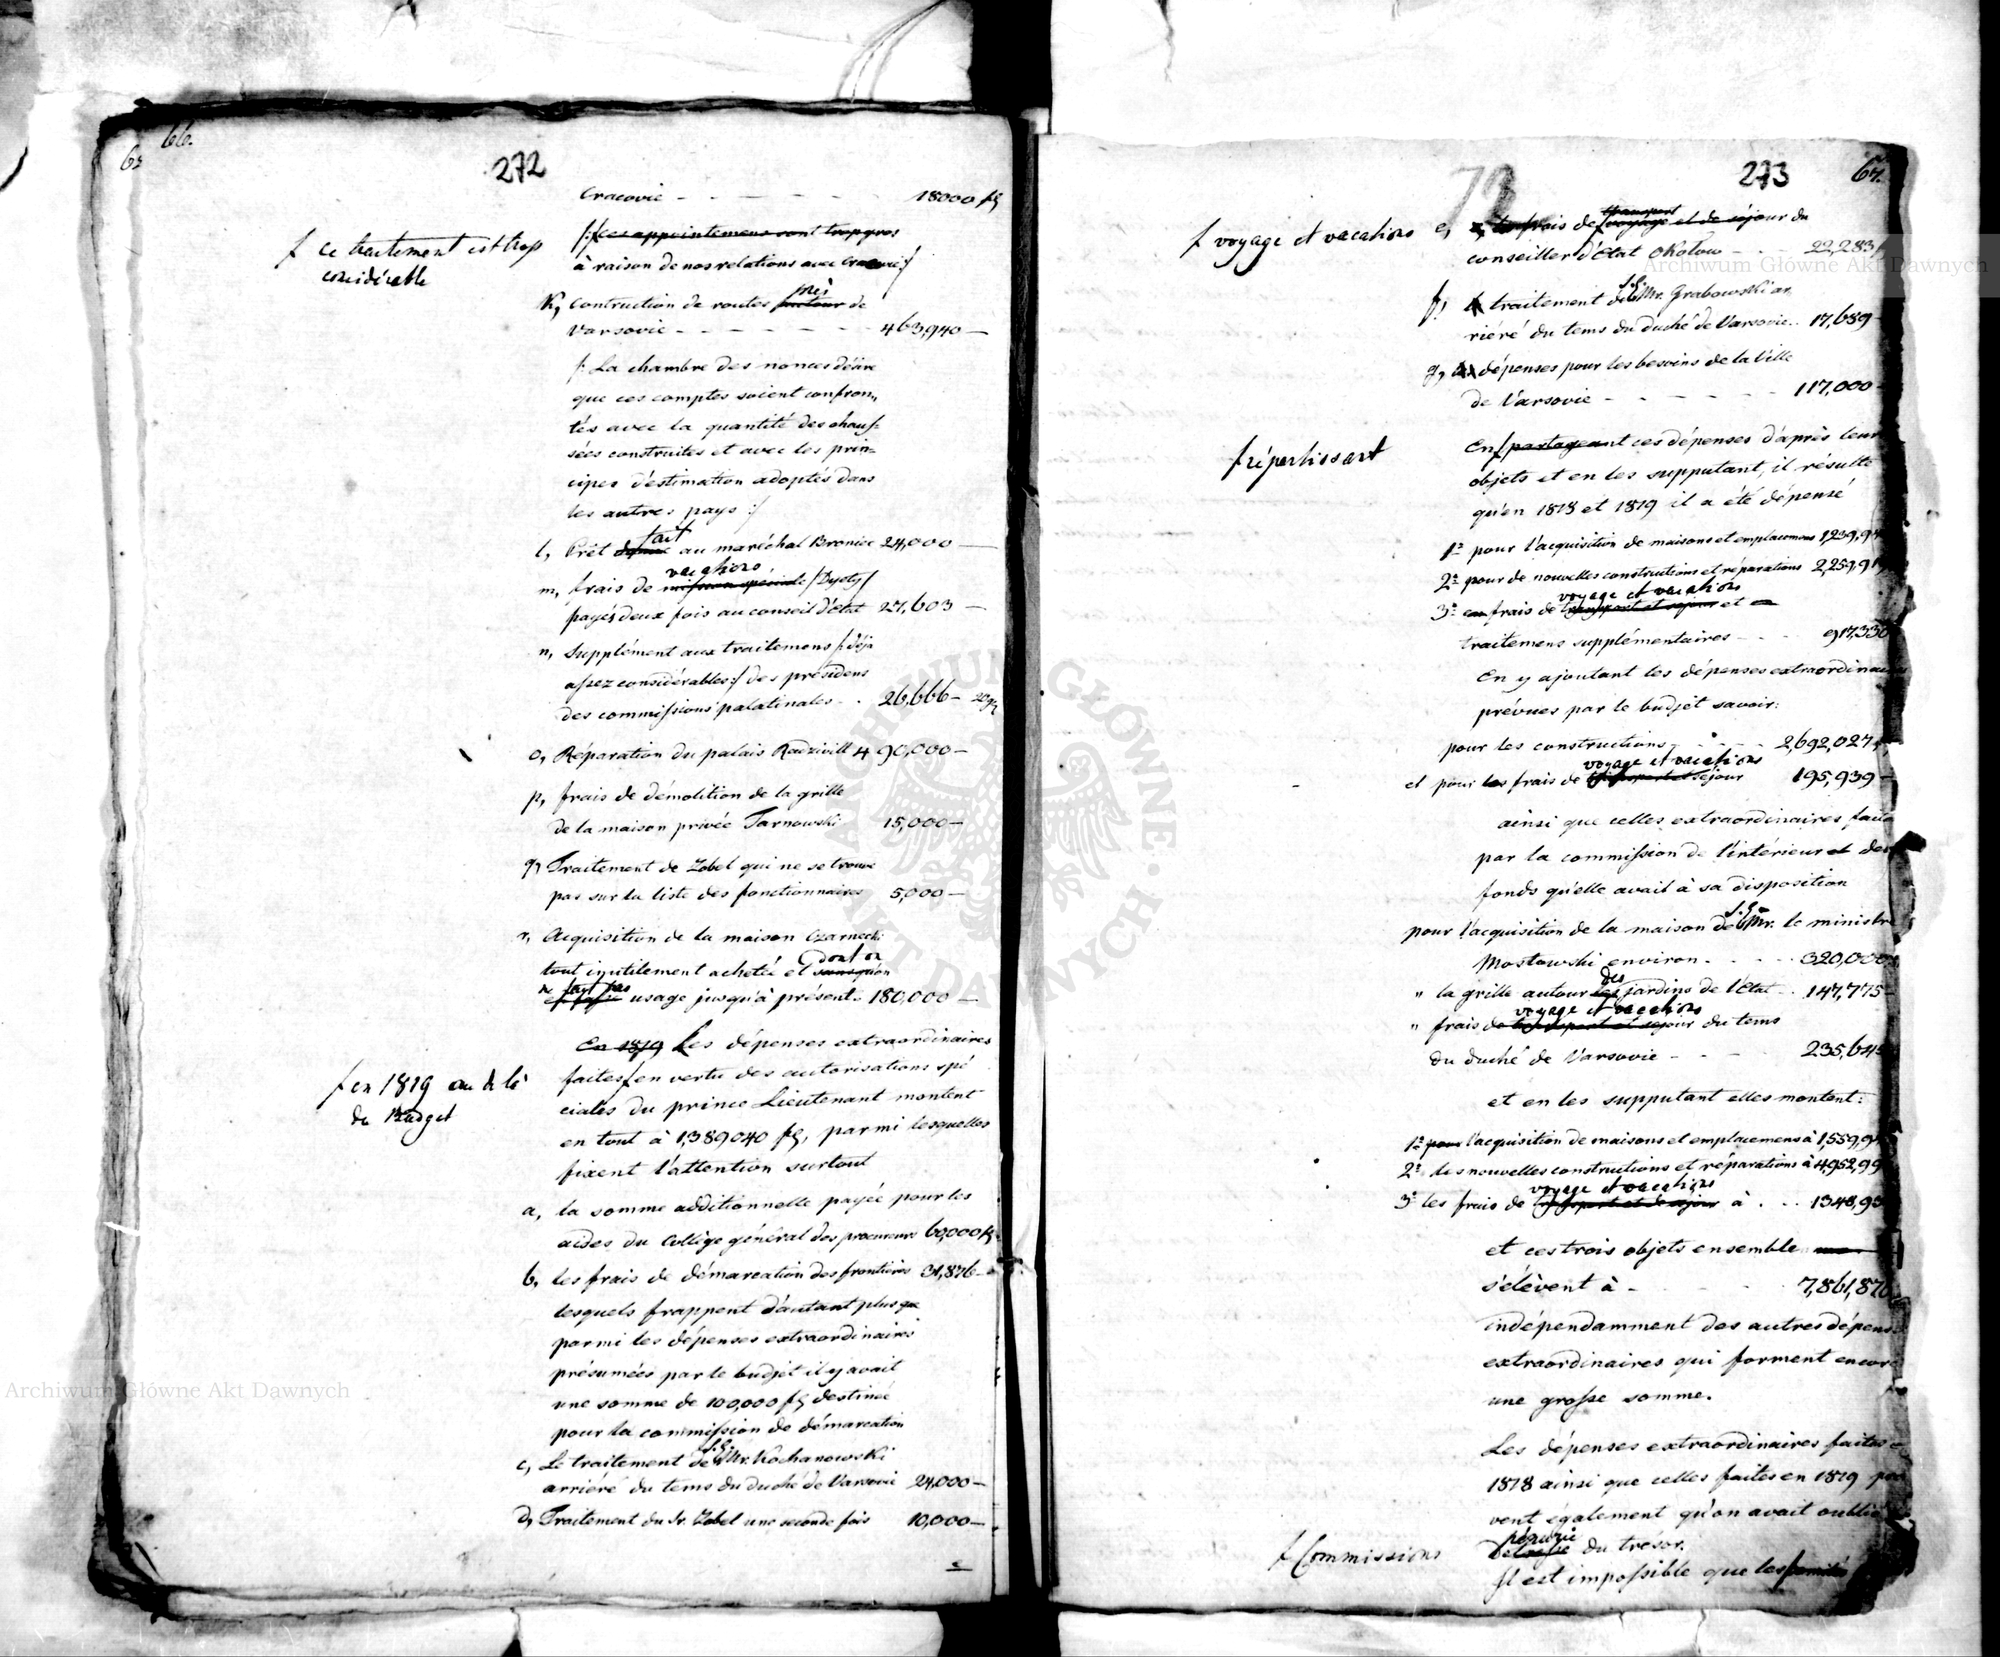 66.
272
Cracovie - - - - - 18000 fl
/:ces appointemens sont trop gros
ƒ ce traitement est trop
considérable
à raison de nos relations avec Cracovie:/
k, Contruction de routes autour près de
Varsovie - - - - - 463,940 —
/: La chambre des nonces désire
que ces comptes soient confron„
tés avec la quantité des chauſ:
sées construites et avec les prin=
cipes d'estimation adoptés dans
les autres pays :/
l, Prêt donné fait au maréchal Broniec 24,000 —
m, frais de mission spéciale vacations /Dyety/
payés deux fois au conseil d'Etat 27,603 —
n, Supplément aux traitemens /: déjà
aſsez considérables:/ des présidens
des commiſsions palatinales - . 26,666 — 20 gr
o, Réparation du palais Radzivill 490,000 —
p, frais de démolition de la grille
de la maison privée Tarnowski 15,000 —
q, Traitement de Zobel qui ne se trouve
pas sur la liste des fonctionnaires 5,000 —
r, Acquisition de la maison Czarnecki
tout inutilement achetée et sans qu'on dont on
ne fait pas usage jusqu'à présent. 180,000 —
En 1819 Les dépenses extraordinaires
ƒ en 1819 au delà
du Budget
faites ƒ en vertu des autorisations spé
ciales du prince Lieutenant montent
en tout à 1,389,040 fl, parmi lesquelles
fixent l'attention surtout
a, la somme additionnelle payée pour les
aides du Collège général des procureurs 60,000 fl
b, les frais de démarcation des frontières 31,876 —
lesquels frappent d'autant plus que
parmi les dépenses extraordinaires
présumées par le budjet il y avait
une somme de 100,000 fl destinée
pour la commiſsion de démarcation
c, Le traitement de S.E. Mr. Kochanowski
arriéré du tems du duché de Varsovie 24,000 —
d, Traitement du Sr. Zobel une seconde fois 10,000 —
273
67.
ƒ voyage et vacations
e, frais de transport voyage et de séjour du
conseiller d'Etat Okolow - - 22,283
f, traitement de S.E. Mr. Grabowski ar„
riéré du tems du duché de Varsovie.. 17,689 -
g, dépenses pour les besoins de la Ville
de Varsovie - - - - - 117,000 -
ƒ répartissant
En ƒ partageant ces dépenses d'après leur
objets et en les supputant, il résulte
qu'en 1818 et 1819 il a été dépensé
1º pour l'acquisition de maisons et emplacemens 1,239,94
2º pour de nouvelles constructions et réparations 2,259,9
3º en frais de transport et séjour voyage et vacations et en
traitemens supplémentaires - - - 917,330
En y ajoutant les dépenses extraordinaires
prévues par le budjet savoir:
pour les constructions - - - 2,692,027
et pour les frais de transport et séjour voyage et vacations 195,939 -
ainsi que celles extraordinaires faites
par la commiſsion de l'intérieur et des
fonds qu'elle avait à sa disposition
pour l'acquisition de la maison de S.E. Mr. le ministre
Mostowski environ - - - - 320,000
" la grille autour des jardins de l'Etat - . 147,775 -
" frais de transport et séjour voyage et vacations du tems
du duché de Varsovie - - - 235,64
et en les supputant elles montent:
1º pour l'acquisition de maisons et emplacemens à 1,559,9
2º les nouvelles constructions et réparations à 4,952,99
3º les frais de transport et de séjour voyage et vacations à . . . 1348,93
et ces trois objets ensemble
s'élèvent à - - - 7,861,87
indépendamment des autres dépenses
extraordinaires qui forment encore
une groſse somme.
Les dépenses extraordinaires faites
1818 ainsi que celles faites en 1819
vent également qu'on avait oublié
pénurie du trésor.
ƒ Commissions
Il est impoſsible que les
Archiwum Główne Akt Dawnych
Archiwum Główne Akt Dawnych
ARCHIWUM GŁÓWNE AKT DAWNYCH